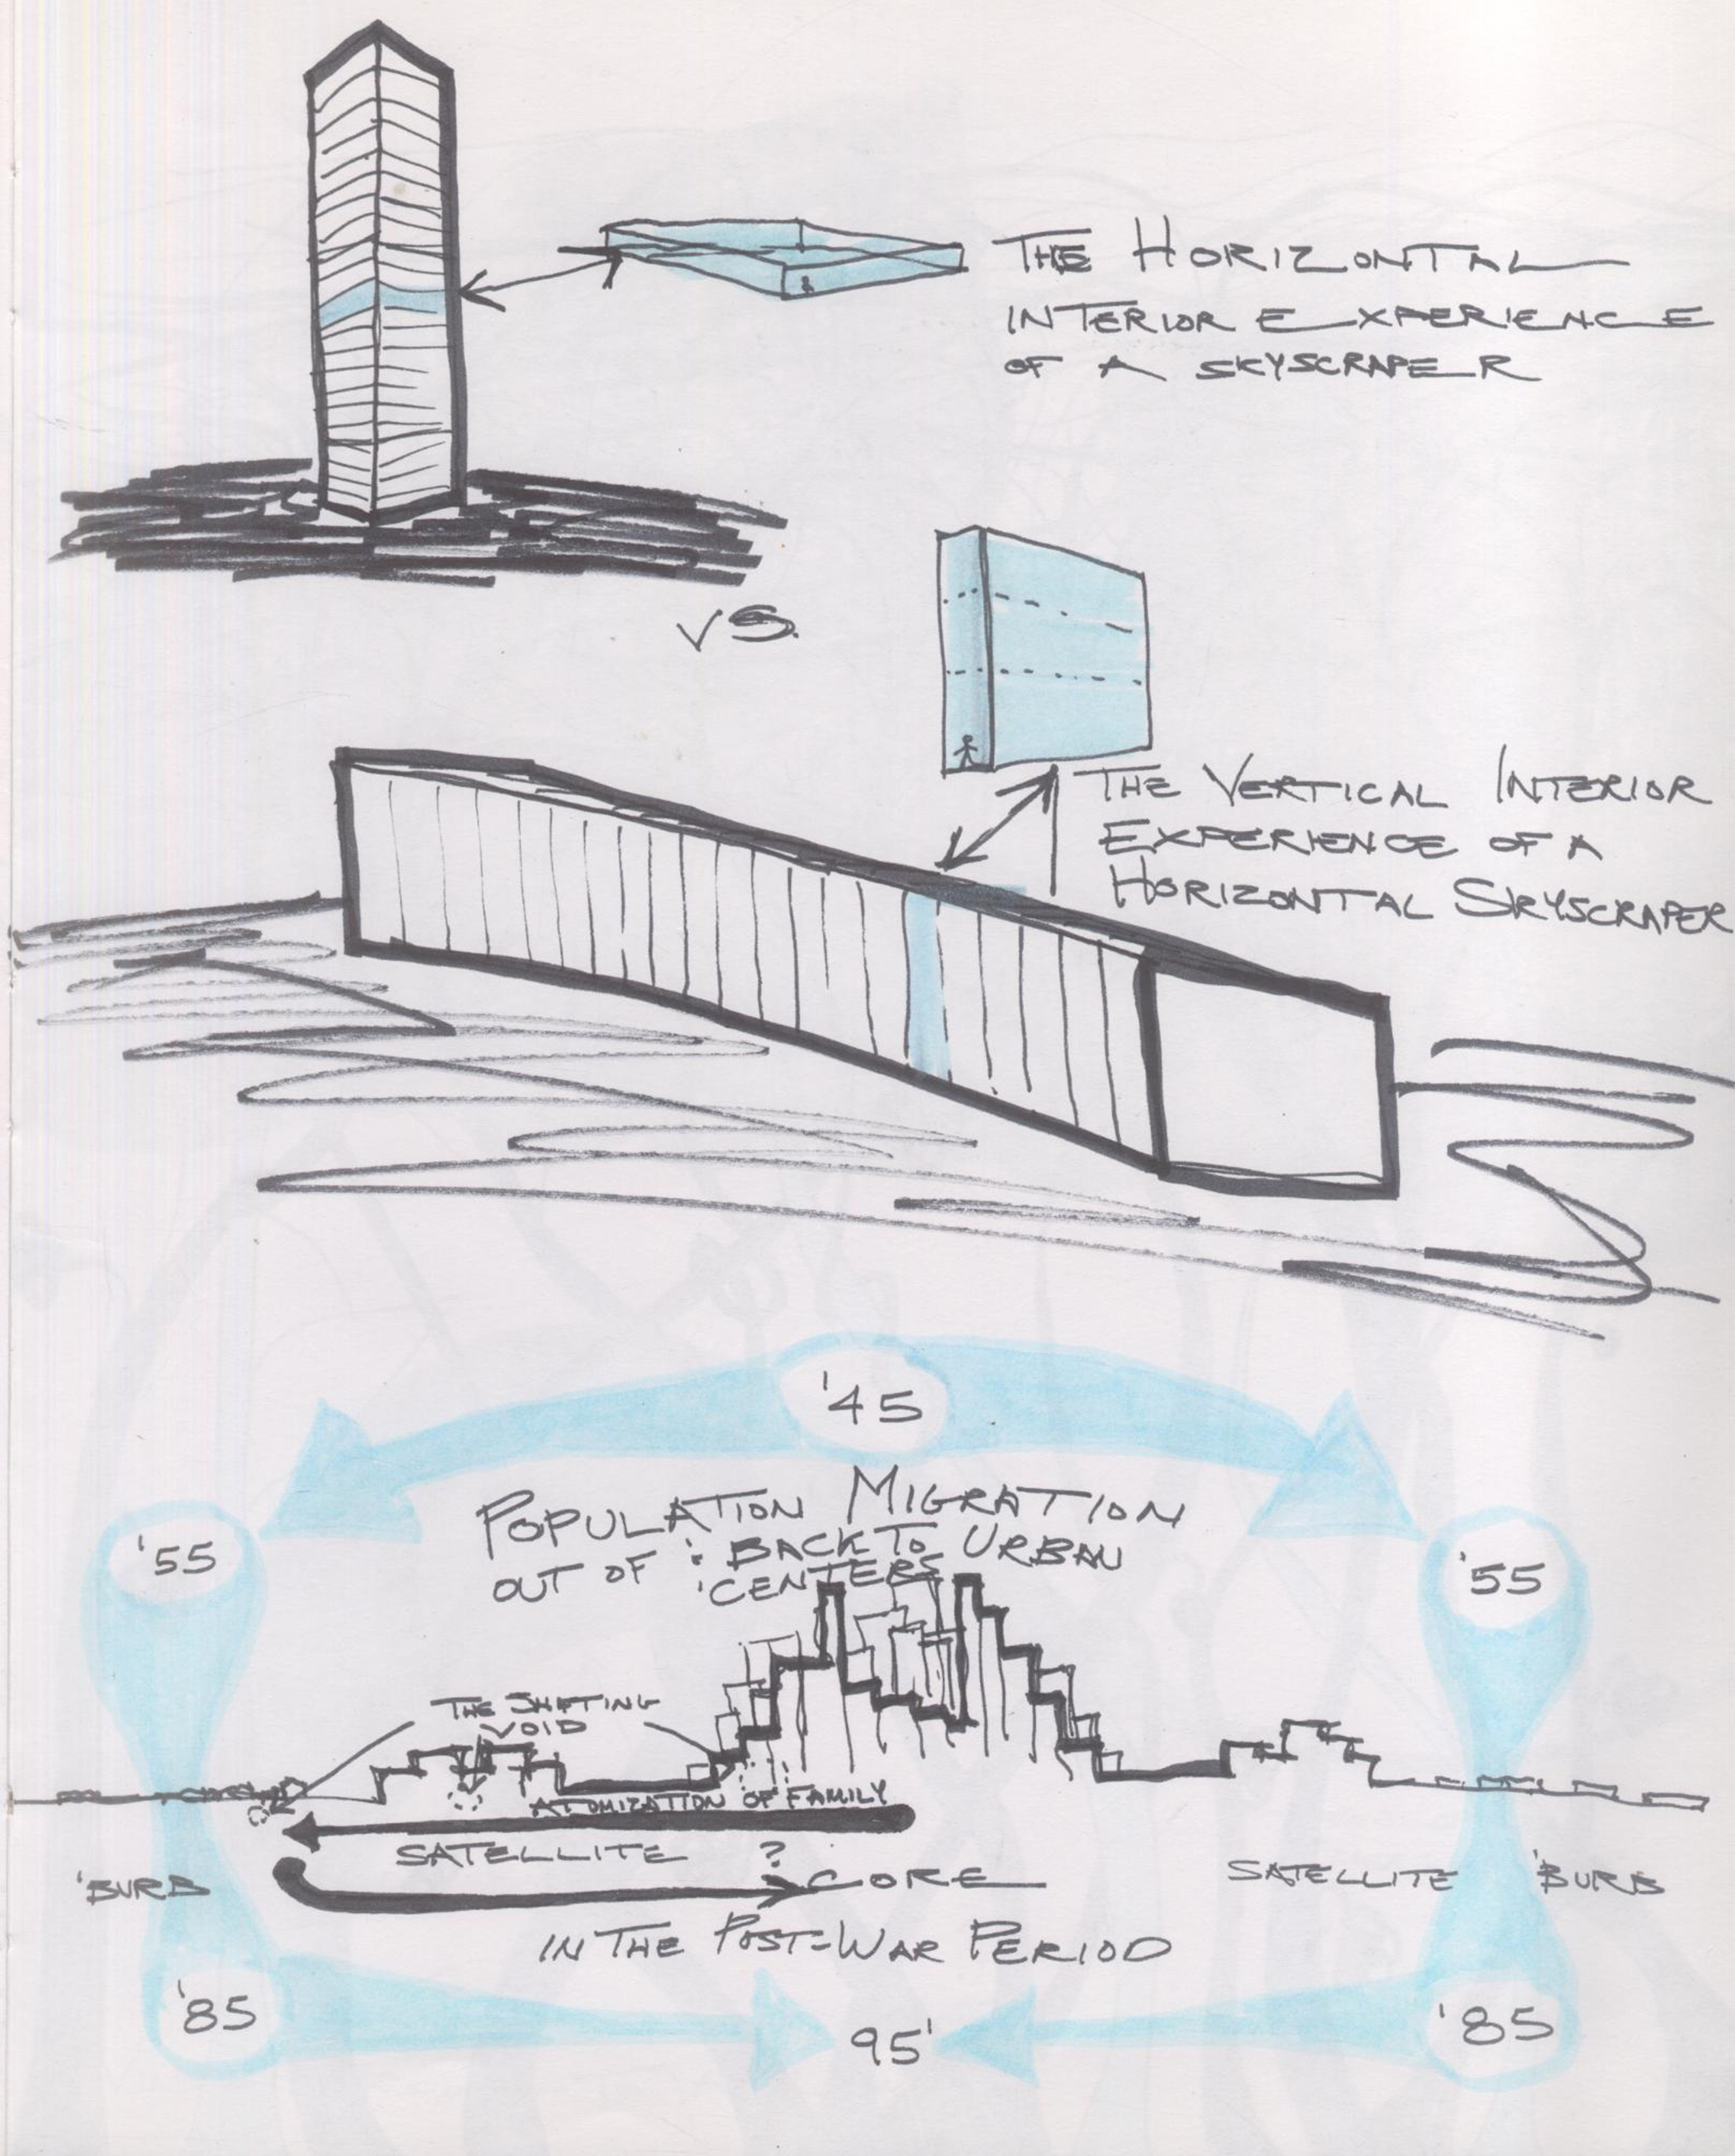 THE HORIZONTAL
INTERIOR EXPERIENCE
OF A SKYSCRAPER
VS.
THE VERTICAL INTERIOR
EXPERIENCE OF A
HORIZONTAL SKYSCRAPER
'45
'55
POPULATION MIGRATION
OUT OF : BACK TO URBAN
CENTERS
'55
THE SHIFTING
VOID
ATOMIZATION OF FAMILY
SATELLITE ?
'BURB
CORE
SATELLITE
'BURB
IN THE POST-WAR PERIOD
'85
95'
'85